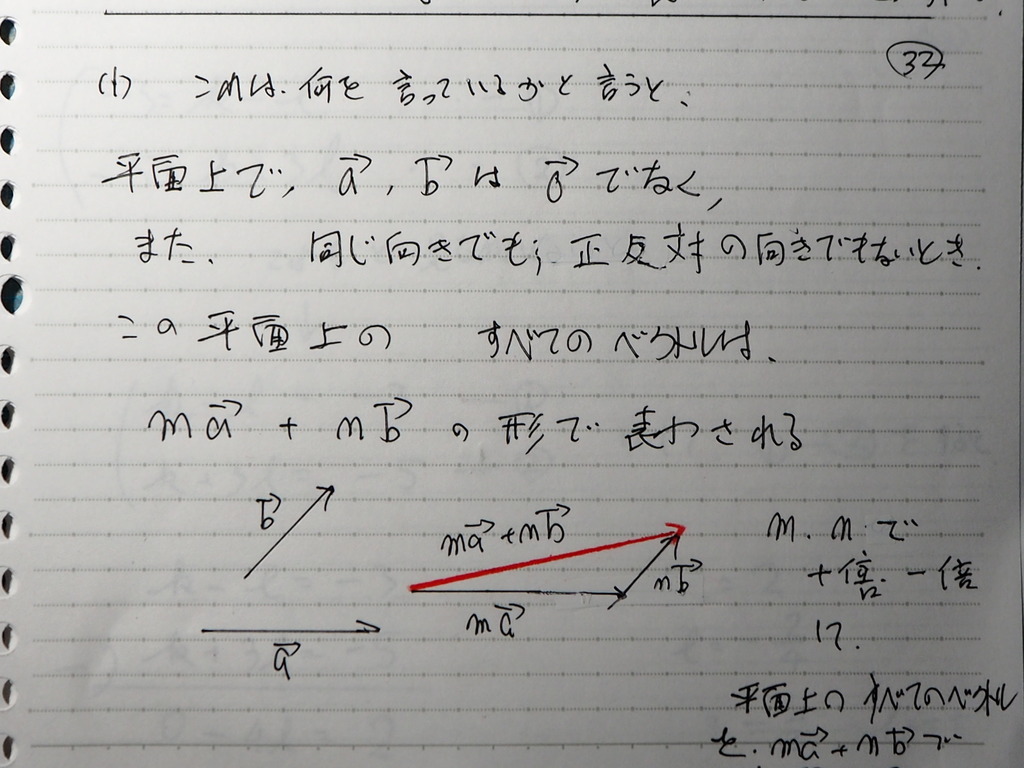 33
(1) これは、何を言っているかと言うと、
平面上で、a→, b→ は o→ でなく、
また、同じ向きでも、正反対の向きでもないとき、
この平面上の すべてのベクトルは、
ma→ + nb→ の形で表わされる
b→
ma→+nb→
m、nで
+倍、−倍
nb→
ma→
a→
平面上のすべてのベクトル
を、ma→+nb→で